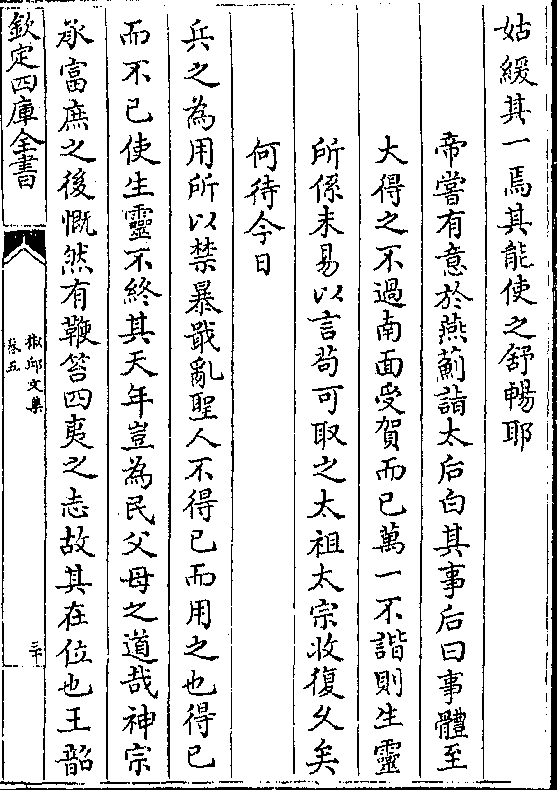 姑緩其一焉其能使之舒暢耶
帝嘗有意於燕薊詣太后白其事后曰事體至
大得之不過南面受賀而已萬一不諧則生靈
所係未易以言苟可取之太祖太宗收復久矣
何待今日
兵之為用所以禁暴戢亂聖人不得已而用之也得已
而不已使生靈不終其天年豈為民父母之道哉神宗
承富庶之後慨然有鞭笞四夷之志故其在位也王韶
欽定四庫全書
椒邱文集
卷五
三十